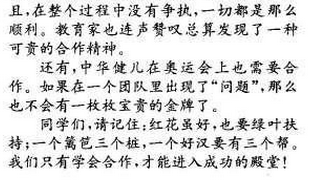 且,在整个过程中没有争执,一切都是那么
顺利。教育家也连声赞叹总算发现了一种
可贵的合作精神。
还有,中华健儿在奥运会上也需要合
作。如果在一个团队里出现了“问题”,那么
也不会有一枚枚宝贵的金牌了。
同学们,请记住:红花虽好,也要绿叶扶
持;一个篱笆三个桩,一个好汉要有三个帮。
我们只有学会合作,才能进入成功的殿堂!